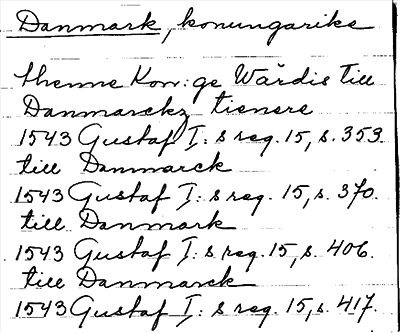 Danmark, konungarike
thenne Kon:ge Wärdis till
Danmarckz tienere
1543 Gustaf I:s reg. 15, s. 353
till Danmarck
1543 Gustaf I:s reg. 15, s. 370.
till Danmark
1543 Gustaf I:s reg. 15, s. 406.
till Danmarck
1543 Gustaf I:s reg. 15, s. 417.